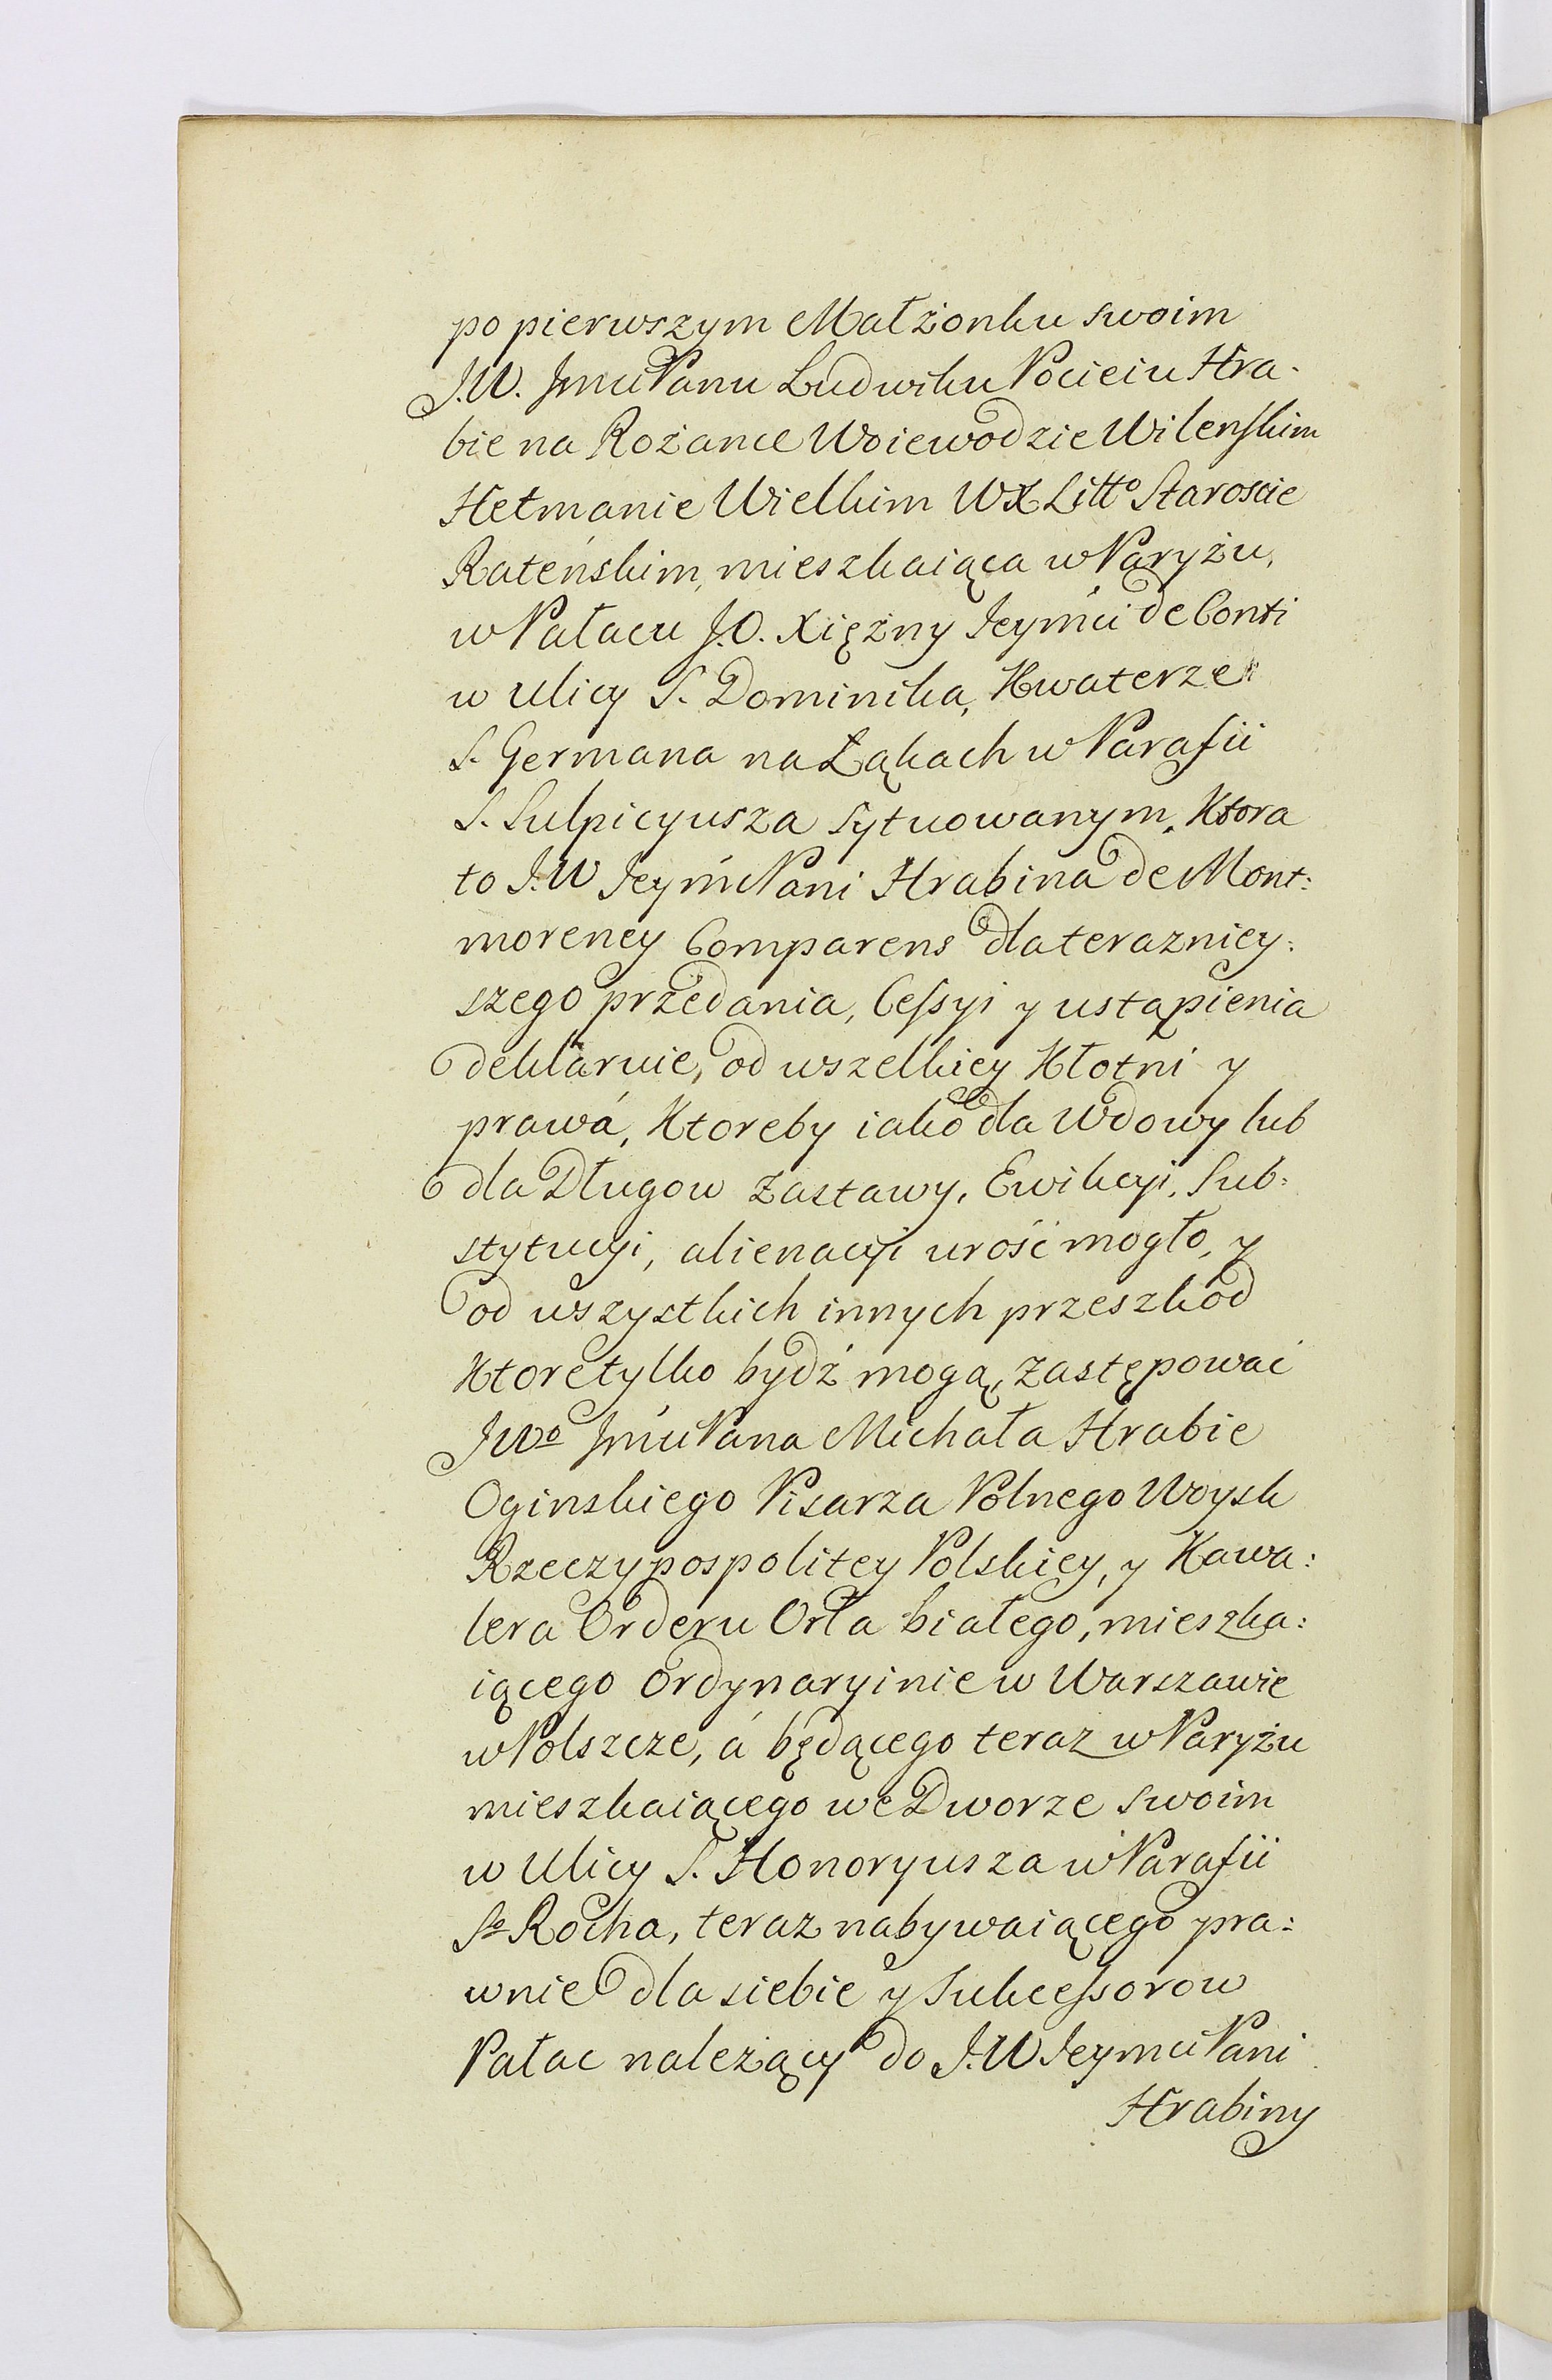 po pierwszym Małżonku swoim
J.W. Jmci Panu Ludwiku Pocieiu Hra-
bie na Rożance Woiewodzie Wilenskim
Hetmanie Wielkim WX Litto Staroscie
Rateńskim, mieszkaiąca w Paryżu,
w Pałacu J.O. Xiężny Jeymci de Conti
w Ulicy S. Dominika, Kwaterze
S. Germana na Łąkach w Parafii
S. Sulpicyusza sytuowanym. Ktora
to J.W Jeymć Pani Hrabina de Mont:
morency Comparens dla teraznicy:
szego przedania, Cessyi y ustąpienia
deklaruie, od wszelkiey Kłotni y
prawá, Ktoreby iako dla Wdowy lub
dla Długow Zastawy, Ewikcyi, Sub:
stytucyi, alienacyi urość mogło, y
od wszystkich innych przeszkod
Ktore tylko bydź mogą, zastępować
JWo Jmci Pana Michała Hrabie
Oginskiego Pisarza Polnego Woysk
Rzeczypospolitey Polskiey, y Kawa:
lera Orderu Orła białego, mieszka:
iącego Ordynaryinie w Warszawie
w Polszcze, á będącego teraz w Paryżu
mieszkaiącego we Dworze swoim
w Ulicy S. Honoryusza w Parafii
So Rocha, teraz nabywaiącego pra:
wnie dla siebie y Sukcessorow
Pałac należący do J.W Jeymci Pani
Hrabiny